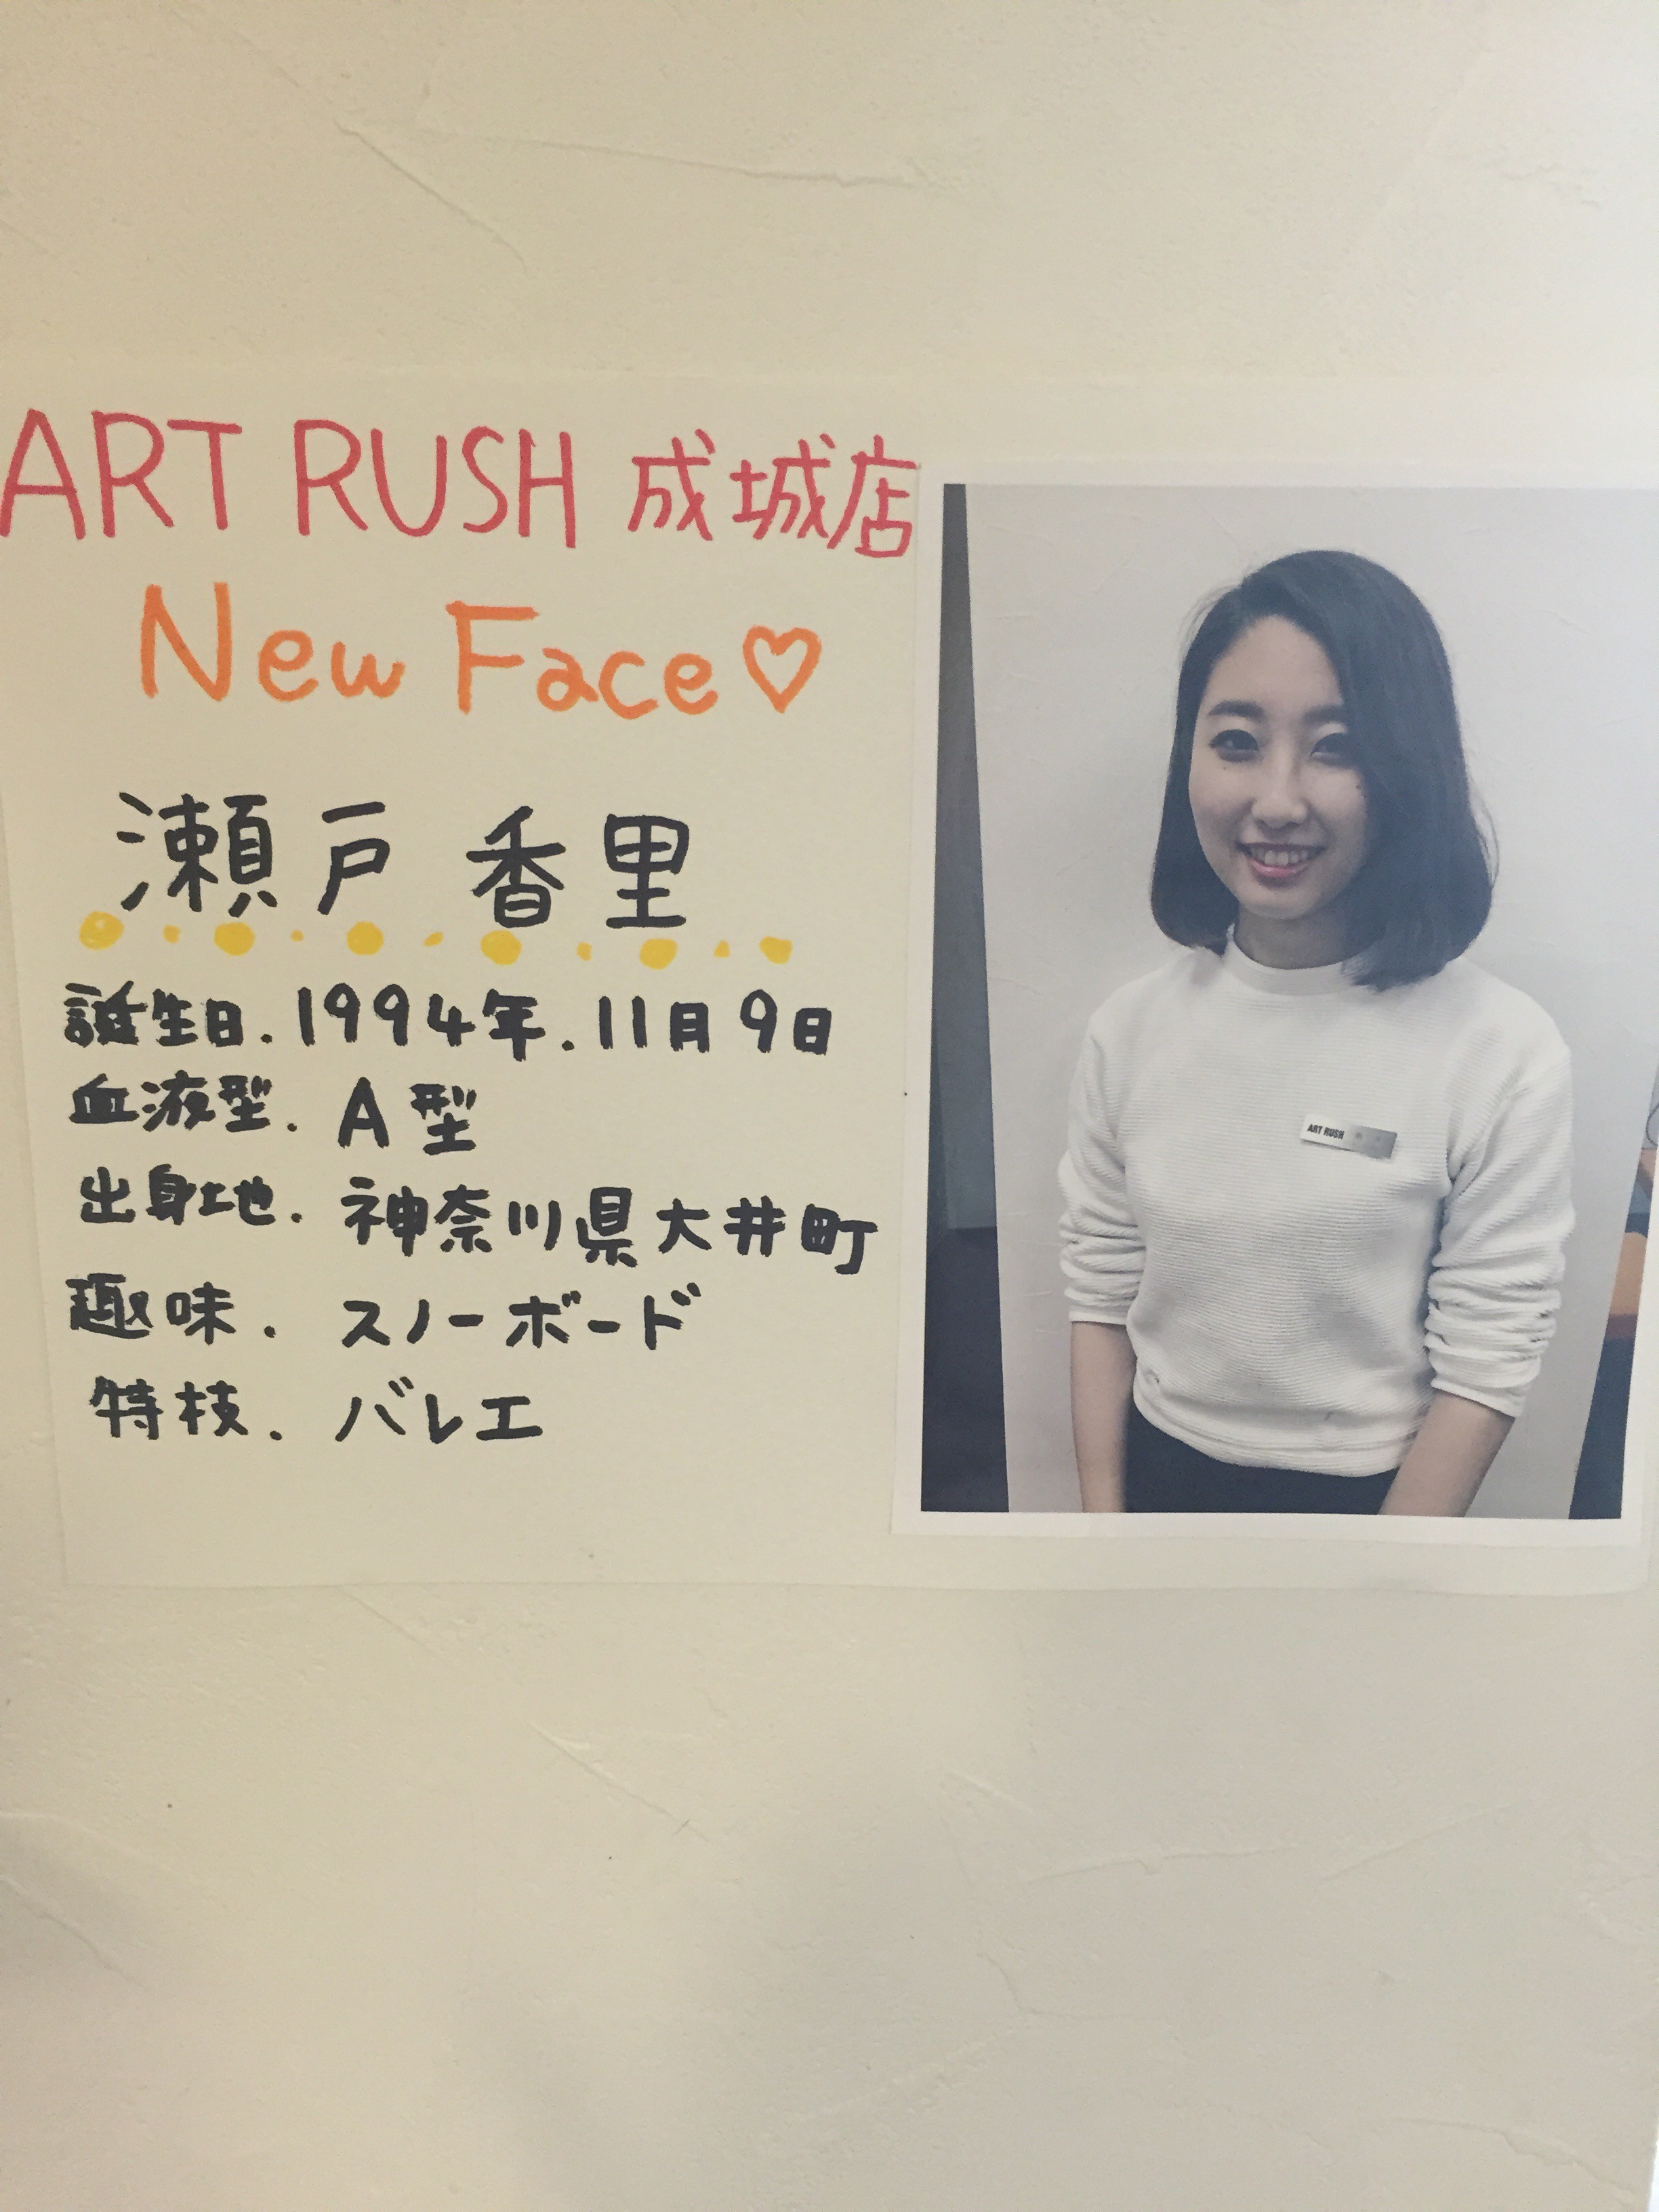 ART RUSH 成城店
New Face♡
瀬戸 香里
誕生日. 1994年. 11月9日
血液型. A型
出身地. 神奈川県大井町
趣味. スノーボード
特枝. バレエ
ART RUSH